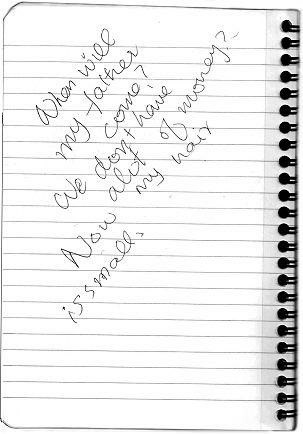 When will
my father
come?
We don't have
alot of money?
Now my hair
is small.